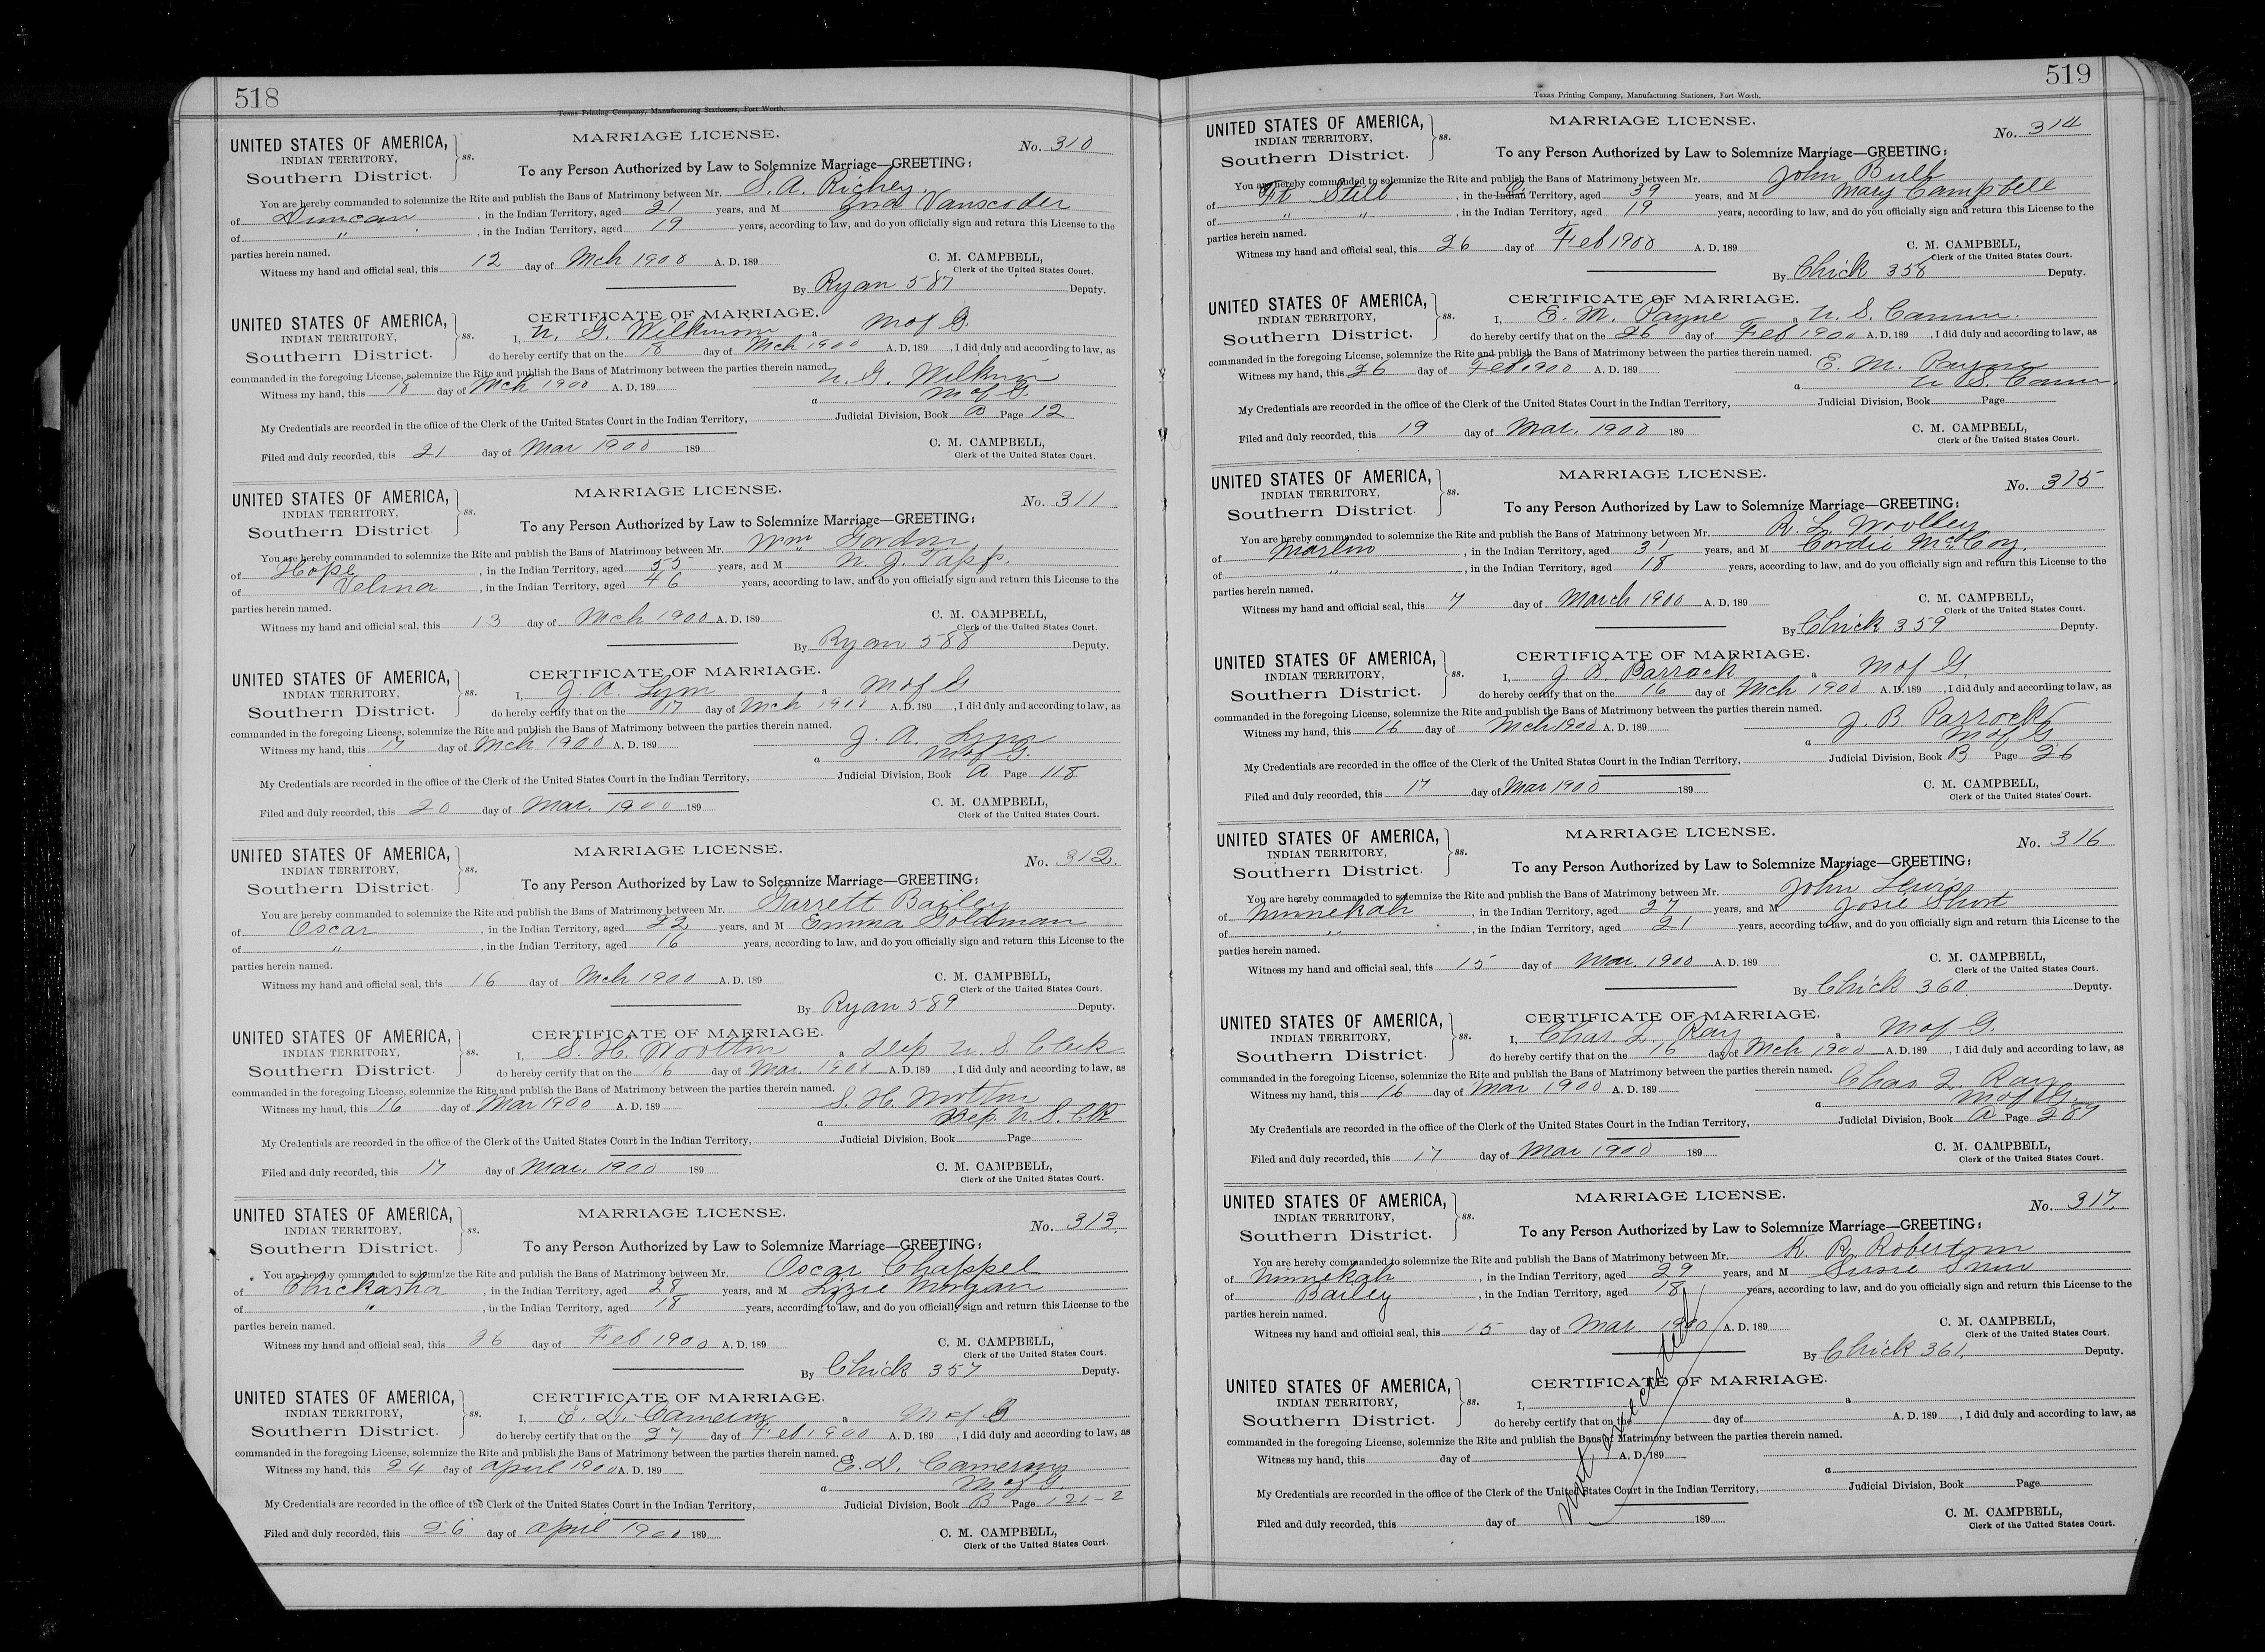 518
Texas Printing Company, Manufacturing Stationers, Fort Worth.
UNITED STATES OF AMERICA,
INDIAN TERRITORY,
Southern District.
ss.
MARRIAGE LICENSE.
No. 310
To any Person Authorized by Law to Solemnize Marriage—GREETING:
You are hereby commanded to solemnize the Rite and publish the Bans of Matrimony between Mr. S. A. Richey
of Duncan, in the Indian Territory, aged 21 years, and M Vanscoder
of ", in the Indian Territory, aged 19 years, according to law, and do you officially sign and return this License to the
parties herein named.
Witness my hand and official seal, this 12 day of Mch 1900 A. D. 189
C. M. CAMPBELL,
Clerk of the United States Court.
By Ryan 587 Deputy.
UNITED STATES OF AMERICA,
INDIAN TERRITORY,
Southern District.
ss.
CERTIFICATE OF MARRIAGE.
I, N. G. Wilkinson, a M of G.
do hereby certify that on the 18 day of Mch 1900 A. D. 189 , I did duly and according to law, as
commanded in the foregoing License, solemnize the Rite and publish the Bans of Matrimony between the parties therein named.
Witness my hand, this 18 day of Mch 1900 A. D. 189
N. G. Wilkinson
a M of G.
My Credentials are recorded in the office of the Clerk of the United States Court in the Indian Territory, Judicial Division, Book B Page 12
Filed and duly recorded, this 21 day of Mar 1900 189
C. M. CAMPBELL,
Clerk of the United States Court.
UNITED STATES OF AMERICA,
INDIAN TERRITORY,
Southern District.
ss.
MARRIAGE LICENSE.
No. 311
To any Person Authorized by Law to Solemnize Marriage—GREETING:
You are hereby commanded to solemnize the Rite and publish the Bans of Matrimony between Mr. Wm Gordon
of Hope, in the Indian Territory, aged 55 years, and M N. J. Tapp.
of Velma, in the Indian Territory, aged 46 years, according to law, and do you officially sign and return this License to the
parties herein named.
Witness my hand and official seal, this 13 day of Mch 1900 A. D. 189
C. M. CAMPBELL,
Clerk of the United States Court.
By Ryan 588 Deputy.
UNITED STATES OF AMERICA,
INDIAN TERRITORY,
Southern District.
ss.
CERTIFICATE OF MARRIAGE.
I, J. A. a M of G
do hereby certify that on the 17 day of Mch 1900 A. D. 189 , I did duly and according to law, as
commanded in the foregoing License, solemnize the Rite and publish the Bans of Matrimony between the parties therein named.
Witness my hand, this 17 day of Mch 1900 A. D. 189
J. A.
a M of G.
My Credentials are recorded in the office of the Clerk of the United States Court in the Indian Territory, Judicial Division, Book A Page 118
Filed and duly recorded, this 20 day of Mar. 1900 189
C. M. CAMPBELL,
Clerk of the United States Court.
UNITED STATES OF AMERICA,
INDIAN TERRITORY,
Southern District.
ss.
MARRIAGE LICENSE.
No. 312.
To any Person Authorized by Law to Solemnize Marriage—GREETING:
You are hereby commanded to solemnize the Rite and publish the Bans of Matrimony between Mr. Garrett Bailey
of Oscar, in the Indian Territory, aged 22 years, and M Emma Goldman
of ", in the Indian Territory, aged 16 years, according to law, and do you officially sign and return this License to the
parties herein named.
Witness my hand and official seal, this 16 day of Mch 1900 A. D. 189
C. M. CAMPBELL,
Clerk of the United States Court.
By Ryan 589 Deputy.
UNITED STATES OF AMERICA,
INDIAN TERRITORY,
Southern District.
ss.
CERTIFICATE OF MARRIAGE.
I, S. H. Wootton a Dep U S Clerk
do hereby certify that on the 16 day of Mar. 1900 A. D. 189 , I did duly and according to law, as
commanded in the foregoing License, solemnize the Rite and publish the Bans of Matrimony between the parties therein named.
Witness my hand, this 16 day of Mar 1900 A. D. 189
S. H. Wootton
a Dep. U. S. Clk
My Credentials are recorded in the office of the Clerk of the United States Court in the Indian Territory, Judicial Division, Book Page
Filed and duly recorded, this 17 day of Mar. 1900 189
C. M. CAMPBELL,
Clerk of the United States Court.
UNITED STATES OF AMERICA,
INDIAN TERRITORY,
Southern District.
ss.
MARRIAGE LICENSE.
No. 313.
To any Person Authorized by Law to Solemnize Marriage—GREETING:
You are hereby commanded to solemnize the Rite and publish the Bans of Matrimony between Mr. Oscar Chappel
of Chickasha, in the Indian Territory, aged 28 years, and M Lizzie Morgan
of ", in the Indian Territory, aged 18 years, according to law, and do you officially sign and return this License to the
parties herein named.
Witness my hand and official seal, this 26 day of Feb 1900 A. D. 189
C. M. CAMPBELL,
Clerk of the United States Court.
By Chick 357 Deputy.
UNITED STATES OF AMERICA,
INDIAN TERRITORY,
Southern District.
ss.
CERTIFICATE OF MARRIAGE.
I, E. D. Cameron a M of G
do hereby certify that on the 27 day of Feb 1900 A. D. 189 , I did duly and according to law, as
commanded in the foregoing License, solemnize the Rite and publish the Bans of Matrimony between the parties therein named.
Witness my hand, this 24 day of April 1900 A. D. 189
E. D. Cameron
a M of G.
My Credentials are recorded in the office of the Clerk of the United States Court in the Indian Territory, Judicial Division, Book B Page 121-2
Filed and duly recorded, this 26 day of April 1900 189
C. M. CAMPBELL,
Clerk of the United States Court.
519
Texas Printing Company, Manufacturing Stationers, Fort Worth.
UNITED STATES OF AMERICA,
INDIAN TERRITORY,
Southern District.
ss.
MARRIAGE LICENSE.
No. 314
To any Person Authorized by Law to Solemnize Marriage—GREETING:
You are hereby commanded to solemnize the Rite and publish the Bans of Matrimony between Mr. John Bull
of Ft Still, in the Indian Territory, aged 39 years, and M Mary Campbell
of " ", in the Indian Territory, aged 19 years, according to law, and do you officially sign and return this License to the
parties herein named.
Witness my hand and official seal, this 26 day of Feb 1900 A. D. 189
C. M. CAMPBELL,
Clerk of the United States Court.
By Chick 358 Deputy.
UNITED STATES OF AMERICA,
INDIAN TERRITORY,
Southern District.
ss.
CERTIFICATE OF MARRIAGE.
I, E. M. Payne a U. S. Comm.
do hereby certify that on the 26 day of Feb 1900 A. D. 189 , I did duly and according to law, as
commanded in the foregoing License, solemnize the Rite and publish the Bans of Matrimony between the parties therein named.
Witness my hand, this 26 day of Feb 1900 A. D. 189
E. M. Payne
a U S. Comm.
My Credentials are recorded in the office of the Clerk of the United States Court in the Indian Territory, Judicial Division, Book Page
Filed and duly recorded, this 19 day of Mar. 1900 189
C. M. CAMPBELL,
Clerk of the United States Court.
UNITED STATES OF AMERICA,
INDIAN TERRITORY,
Southern District.
ss.
MARRIAGE LICENSE.
No. 315
To any Person Authorized by Law to Solemnize Marriage—GREETING:
You are hereby commanded to solemnize the Rite and publish the Bans of Matrimony between Mr. R. L. Woolley
of Marlow, in the Indian Territory, aged 31 years, and M Cordie McCoy.
of ", in the Indian Territory, aged 18 years, according to law, and do you officially sign and return this License to the
parties herein named.
Witness my hand and official seal, this 7 day of March 1900 A. D. 189
C. M. CAMPBELL,
Clerk of the United States Court.
By Chick 359 Deputy.
UNITED STATES OF AMERICA,
INDIAN TERRITORY,
Southern District.
ss.
CERTIFICATE OF MARRIAGE.
I, J. B. Parrack a M of G.
do hereby certify that on the 16 day of Mch 1900 A. D. 189 , I did duly and according to law, as
commanded in the foregoing License, solemnize the Rite and publish the Bans of Matrimony between the parties therein named.
Witness my hand, this 16 day of Mch 1900 A. D. 189
J. B. Parrock
a M of G
My Credentials are recorded in the office of the Clerk of the United States Court in the Indian Territory, Judicial Division, Book B Page 26
Filed and duly recorded, this 17 day of Mar 1900 189
C. M. CAMPBELL,
Clerk of the United States Court.
UNITED STATES OF AMERICA,
INDIAN TERRITORY,
Southern District.
ss.
MARRIAGE LICENSE.
No. 316
To any Person Authorized by Law to Solemnize Marriage—GREETING:
You are hereby commanded to solemnize the Rite and publish the Bans of Matrimony between Mr. John Lewis
of Minnekah, in the Indian Territory, aged 27 years, and M Josie Short
of ", in the Indian Territory, aged 21 years, according to law, and do you officially sign and return this License to the
parties herein named.
Witness my hand and official seal, this 15 day of Mar. 1900 A. D. 189
C. M. CAMPBELL,
Clerk of the United States Court.
By Chick 360 Deputy.
UNITED STATES OF AMERICA,
INDIAN TERRITORY,
Southern District.
ss.
CERTIFICATE OF MARRIAGE.
I, Chas. L. Ray a M of G.
do hereby certify that on the 16 day of Mch 1900 A. D. 189 , I did duly and according to law, as
commanded in the foregoing License, solemnize the Rite and publish the Bans of Matrimony between the parties therein named.
Witness my hand, this 16 day of Mar 1900 A. D. 189
Chas L. Ray
a M of G.
My Credentials are recorded in the office of the Clerk of the United States Court in the Indian Territory, Judicial Division, Book A Page 287
Filed and duly recorded, this 17 day of Mar 1900 189
C. M. CAMPBELL,
Clerk of the United States Court.
UNITED STATES OF AMERICA,
INDIAN TERRITORY,
Southern District.
ss.
MARRIAGE LICENSE.
No. 317.
To any Person Authorized by Law to Solemnize Marriage—GREETING:
You are hereby commanded to solemnize the Rite and publish the Bans of Matrimony between Mr. K. R. Robertson
of Minnekah, in the Indian Territory, aged 29 years, and M Susie
of Bailey, in the Indian Territory, aged 18 years, according to law, and do you officially sign and return this License to the
parties herein named.
Witness my hand and official seal, this 15 day of Mar 1900 A. D. 189
C. M. CAMPBELL,
Clerk of the United States Court.
By Chick 361. Deputy.
UNITED STATES OF AMERICA,
INDIAN TERRITORY,
Southern District.
ss.
CERTIFICATE OF MARRIAGE.
I, a
do hereby certify that on the day of A. D. 189 , I did duly and according to law, as
commanded in the foregoing License, solemnize the Rite and publish the Bans of Matrimony between the parties therein named.
Witness my hand, this day of A. D. 189
a
not executed
My Credentials are recorded in the office of the Clerk of the United States Court in the Indian Territory, Judicial Division, Book Page
Filed and duly recorded, this day of 189
C. M. CAMPBELL,
Clerk of the United States Court.